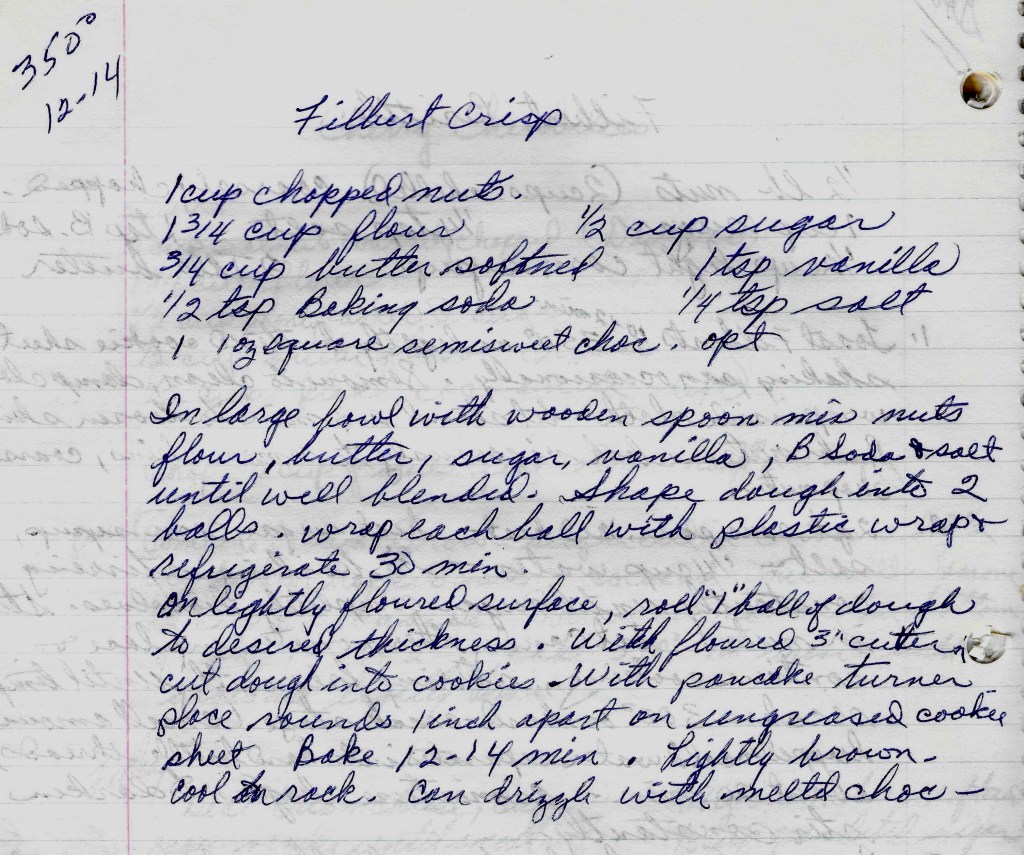 350°
12-14
Filbert Crisp
1 cup chopped nuts.
1 3/4 cup flour 1/2 cup sugar
3/4 cup butter softned 1 tsp vanilla
1/2 tsp Baking soda 1/4 tsp salt
1 1oz square semisweet choc. opt
In large bowl with wooden spoon mix nuts
flour, butter, sugar, vanilla, B Soda & salt
until well blended. Shape dough into 2
balls. wrap each ball with plastic wrap &
refrigerate 30 min.
on lightly floured surface, roll "1" ball of dough
to desired thickness. With floured 3" cutter
cut dough into cookies - With pancake turner
place rounds 1 inch apart on ungreased cookie
sheet Bake 12-14 min. Lightly brown -
cool on rack. Can drizzle with meltd choc -